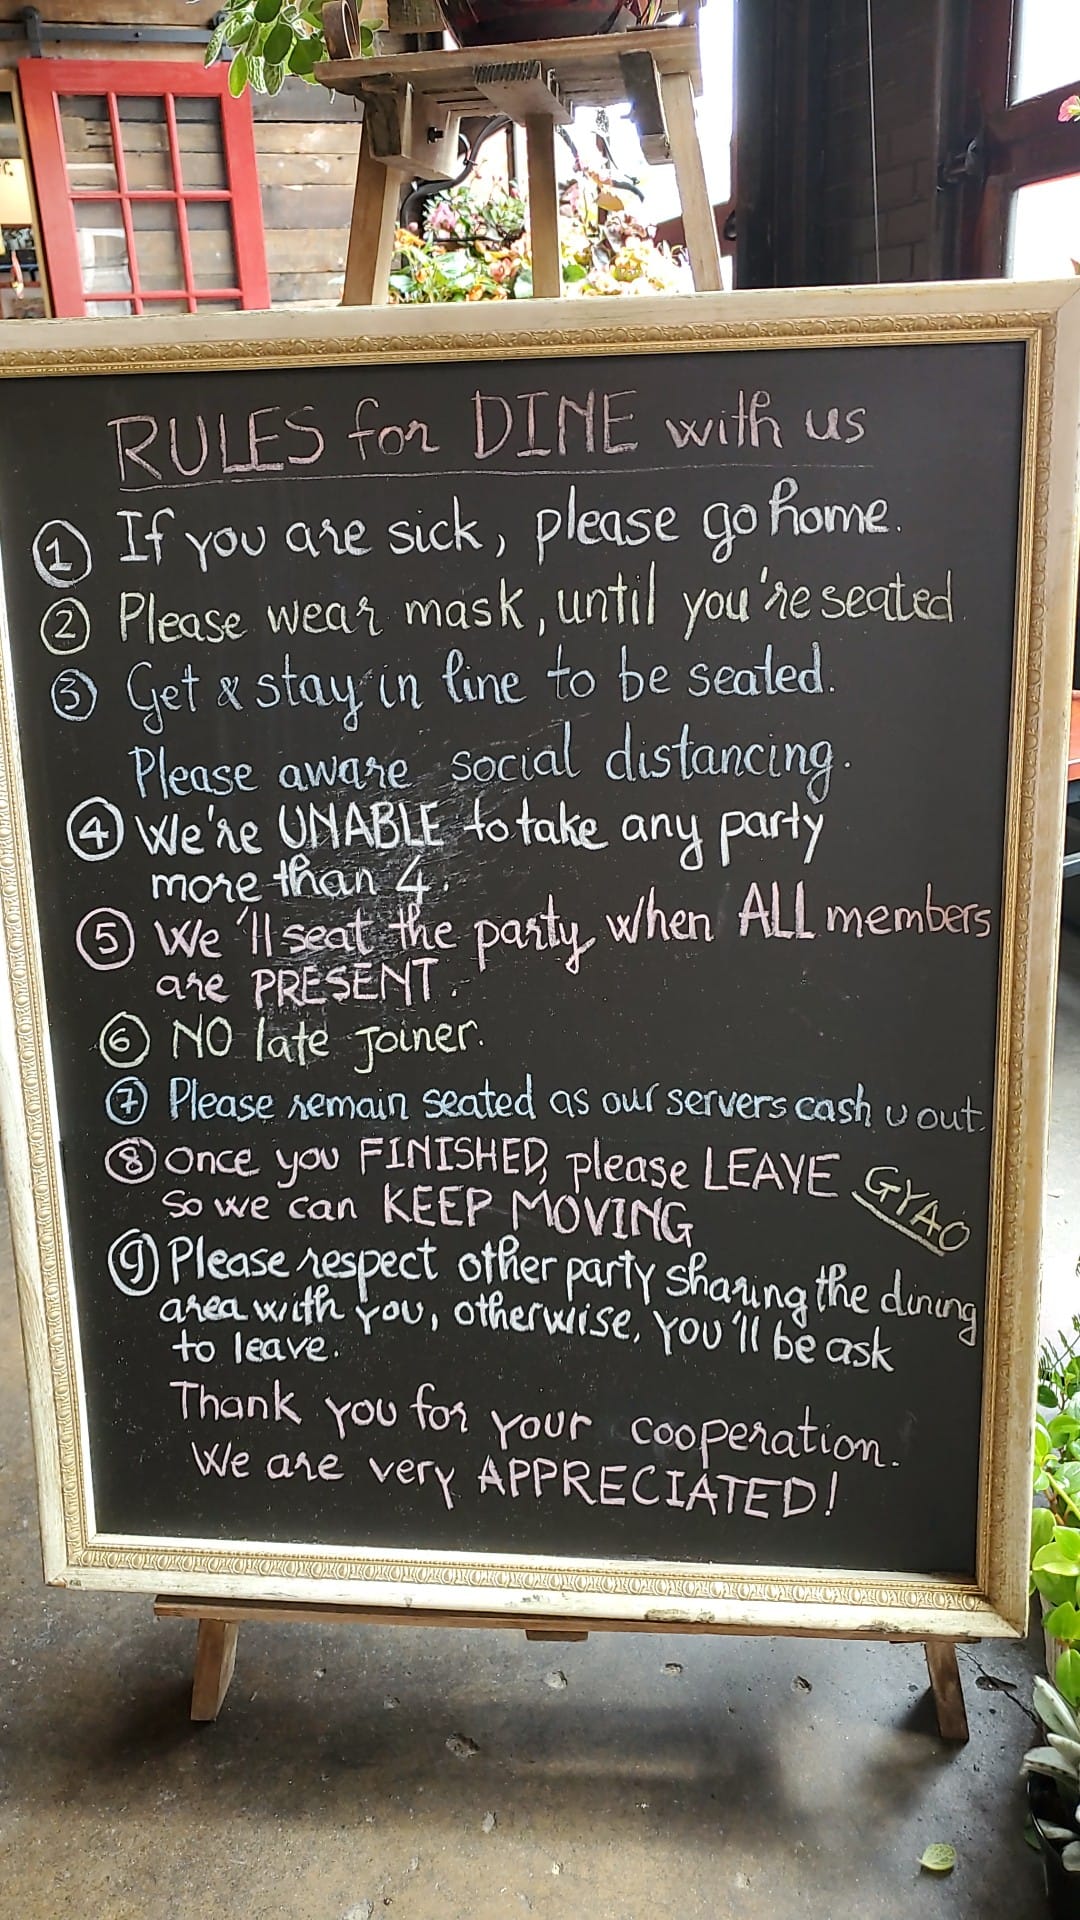 RULES for DINE with us
1 If you are sick, please go home.
2 Please wear mask, until you're seated
3 Get & stay in line to be seated.
Please aware social distancing.
4 We're UNABLE to take any party
more than 4.
5 We'll seat the party when ALL members
are PRESENT.
6 NO late Joiner.
7 Please remain seated as our servers cash u out.
8 Once you FINISHED, please LEAVE GYAO
So we can KEEP MOVING
9 Please respect other party sharing the dining
area with you, otherwise, you'll be ask
to leave.
Thank you for your cooperation.
We are very APPRECIATED!